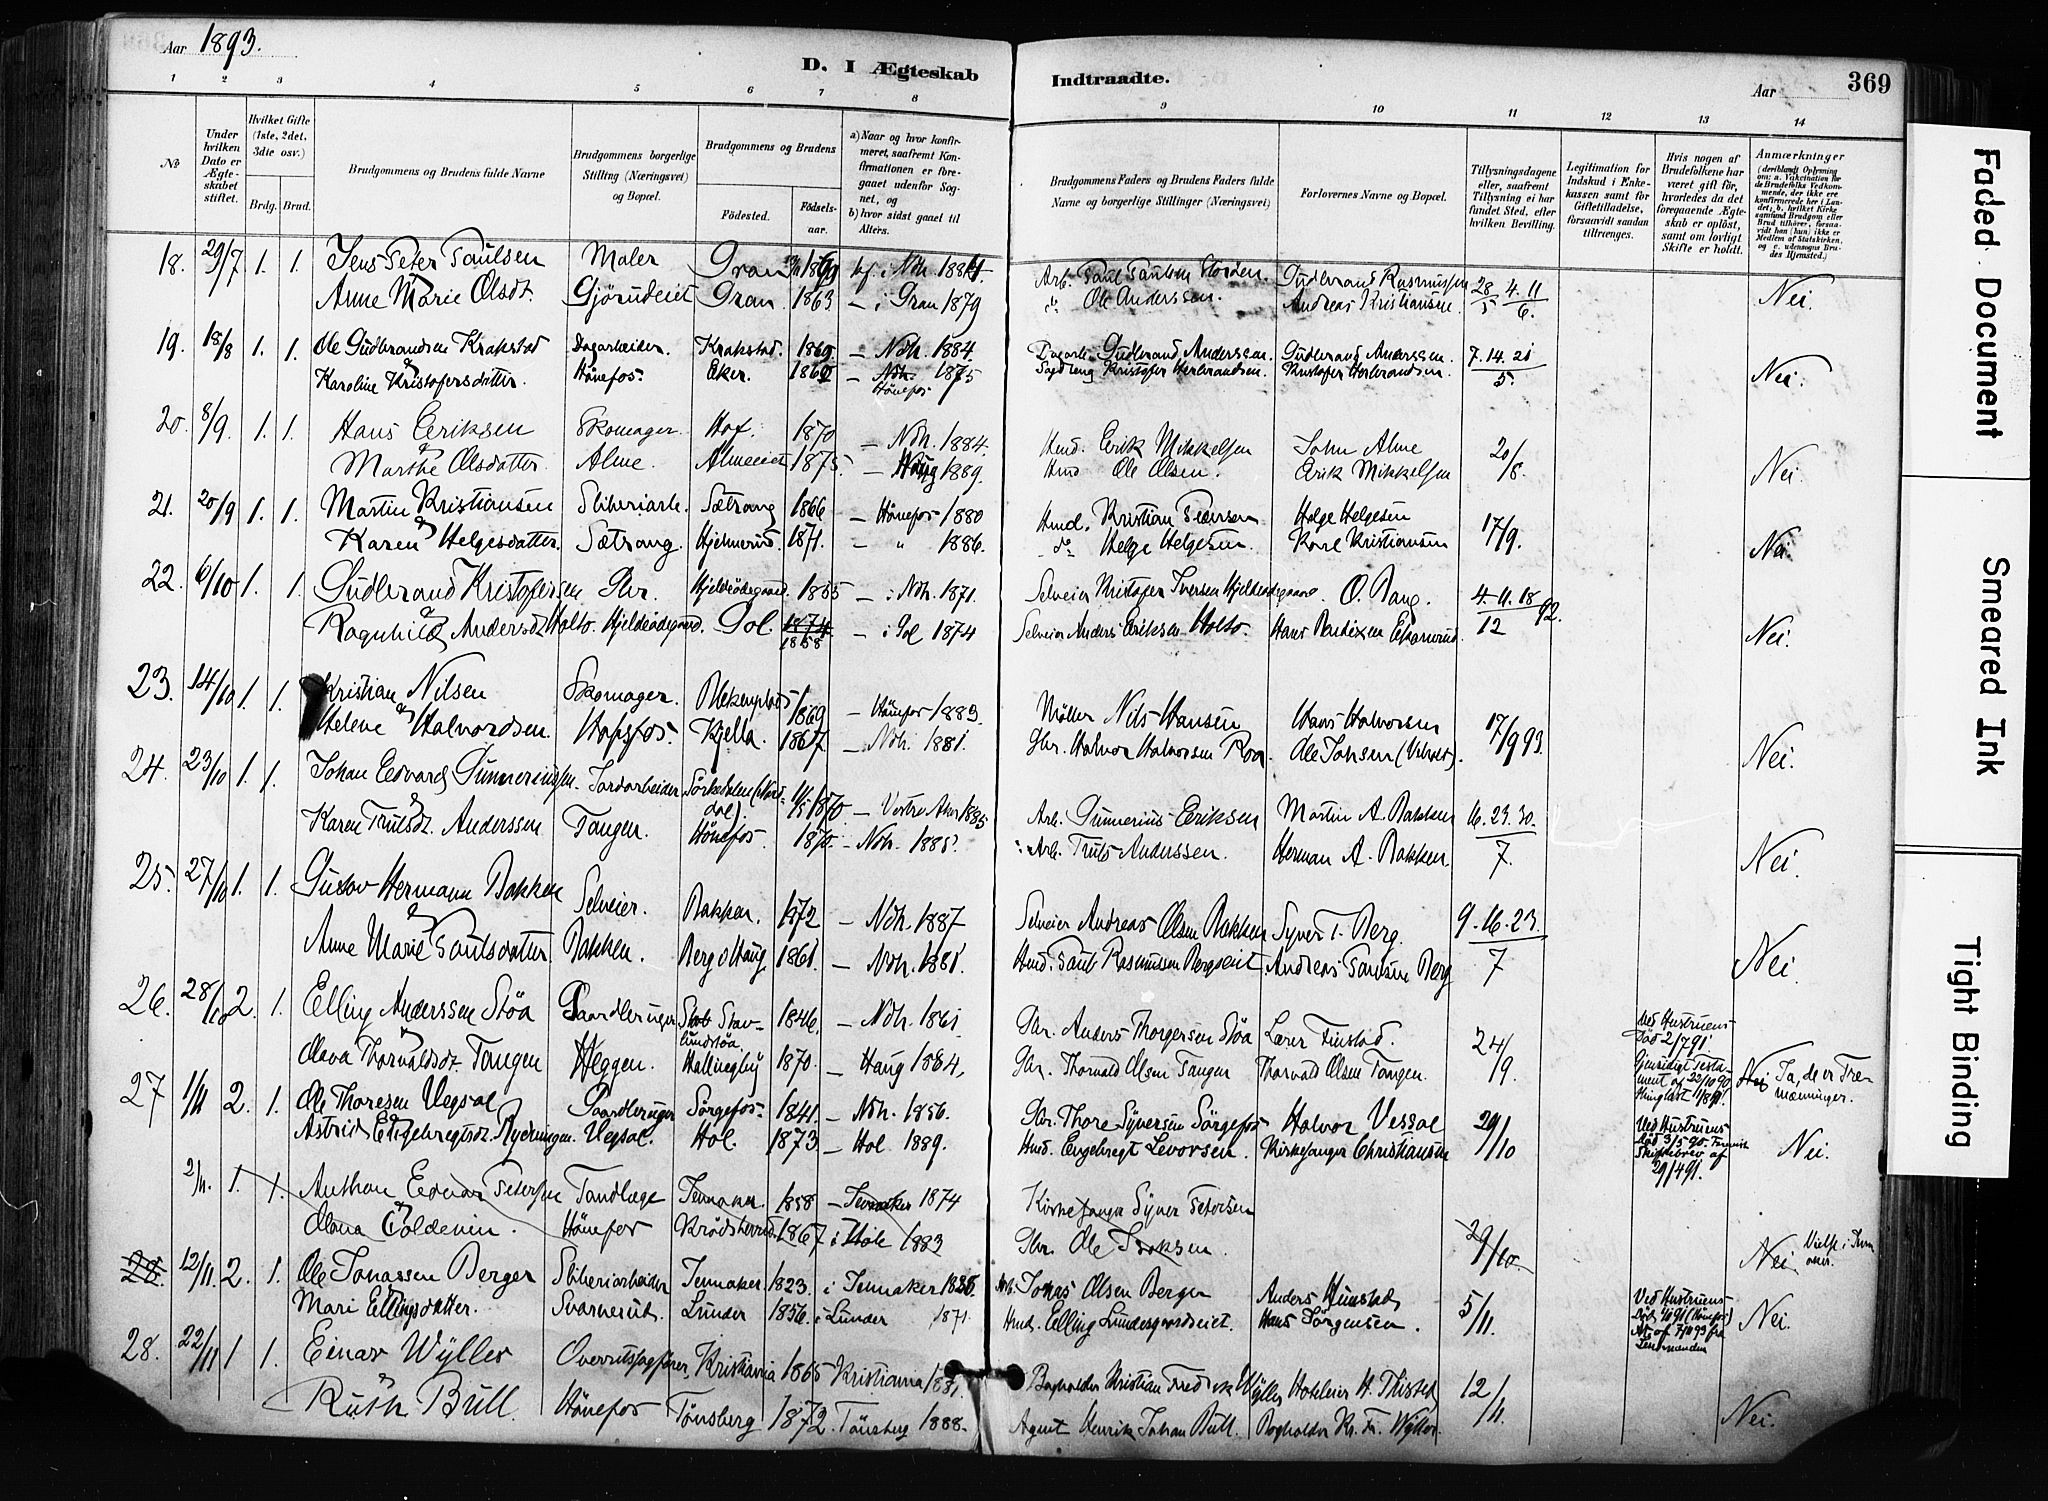 Aar 1893.
D. I Ægteskab Indtraadte.
Aar
369
1 2 3 4 5 6 7 8 9 10 11 12 13 14
No
Under hvilken Dato er Ægteskabet stiftet.
Hvilket Gifte (1ste, 2det, 3die osv.)
Brdg. Brud.
Brudgommens og Brudens fulde Navne
Brudgommens borgerlige Stilling (Næringsvei) og Bopæl.
Brudgommens og Brudens
Fødested. Fødselsaar.
a) Naar og hvor konfirmeret, saafremt Konfirmationen er foregaaet udenfor Sognet, og
b) hvor sidst gaaet til Alters.
Brudgommens Faders og Brudens Faders fulde Navne og borgerlige Stillinger (Næringsvei)
Forlovernes Navne og Bopæl.
Tillysningsdagene eller, saafremt Tillysning ei har fundet Sted, efter hvilken Bevilling.
Legitimation for Indskud i Enkekassen samt for Giftetilladelse, forsaavidt saadan tiltrænges.
Hvis nogen af Brudefolkene har været gift før, hvorledes da det foregaaende Ægteskab er opløst, samt om lovligt Skifte er holdt.
Anmærkninger (deriblandt Oplysning om: a. Vakcination for de Brudefolks Vedkommende, der ikke ere konfirmerede her i Landet; b. hvilket Kirkesamfund Brudgom eller Brud tilhører, forsaavidt han (hun) ikke er Medlem af Statskirken, og c. udensogns Brudes Hjemsted.)
18. 29/7 1. 1. Jens Peter Paulsen Maler Gran kf. i Ndh. 1884. Arb. Gudbrand Rasmussen 28. 4. 11
Anne Marie Olsdt. Gjørudeiet Gran. 1863 – i Gran 1879 do. Ole Anderssen. Andreas Kristiansen. 5 6. Nei.
19. 18/8 1. 1. Ole Gudbrandsen Krakstad Dagarbeider. Krakstad. 1869. – Ndh. 1884. Dagarb. Gudbrand Anderssen. Gudbrand Anderssen. 7. 14. 21
Karoline Kristofersdatter. Hønefos. Eker. – Ndh. 1875 Kristofer Herbrandsen. Kristofer Herbrandsen. 5. Nei.
Hønefos
20. 8/9. 1. 1. Hans Eriksen Skomager. Hof. 1870 – Ndh. 1884. Hmd. Erik Mikkelsen John Alme 20/8.
Marthe Olsdatter. Alme. Almeeiet 1875. – Haug 1889. Hmd Ole Olsen. Erik Mikkelsen Nei.
21. 20/9 1. 1. Martin Kristiansen Sliberiarb. Sætrang 1866 – Hønefos 1880 Hmd. Kristian Pedersen Helge Helgesen 17/9.
Karen Helgesdatter. Sætrang. Hjelmerud. 1871. – " 1886. do Helge Helgesen. Karl Kristiansen Nei.
22. 6/10 1. 1. Gudbrand Kristofersen Gbr. Hjeldeødegaard. 1855 – i Ndh. 1871. Selveier Kristofer Iversen Hjeldeødegaard O. Bang. 4. 11. 18/12 92.
Ragnhild Andersdt Holto. Hjeldeødegaard. Gol. 1874 1858 – i Gol 1874 Selveier Anders Eriksen Holto. Hans Bendixen Nei.
23. 14/10 1. 1. Kristian Nilsen Skomager. 1869 – Hønefos 1883. Møller Nils Hansen Hans Halvorsen 17/9 93.
Helene Halvordsen. Hofsfos. Kjella. 1867. – Ndh. 1881. Gbr. Halvor Halvorsen Roa. Ole Johsen Nei.
24. 23/10 1. 1. Johan Edvard Gunneriussen Jordarbeider Sørkedalen 1870 – Vestre Aker 1885 Arb. Gunnerius Eriksen Martin A. Bakken 16. 23. 30.
Karen Trulsdt. Anderssen Tangen. Hønefos. 1870. – Ndh. 1885. Arb. Truls Anderssen. Herman A. Bakken. 7. Nei.
25. 27/10 1. 1. Gustav Hermann Bakken Selveier. Bakken. 1872 – Ndh. 1887 Selveier Andreas Olsen Bakken Syver T. Berg. 9. 16. 23.
Anne Marie Paulsdatter. Bakken. Berg i Haug 1861. – Ndh. 1881. Hmd. Paul Rasmussen Bergseiet Andreas Paulsen Berg 7 Nei.
26. 28/10 2. 1. Elling Anderssen Støa Gaardbruger Stavlundstøa 1846. – Ndh. 1861 Gbr. Anders Thorgersen Støa Lærer Finstad. 24/9. Ved Hustruens Død 2/7 91
Olava Thorvaldsdt. Tangen Heggen. Hallingby 1870. – Haug 1884. Gbr. Thorvald Olsen Tangen Thorvald Olsen Tangen. Gjensidigt Testament af 22/10 90 Nei Ja, de er Fremmæninger.
27 1/11 2. 1. Ole Thoresen Vegsal Gaardbruger Sørgefos. 1841. – Ndh. 1856. Gbr. Thore Syversen Sørgefos Halvor Vessal 29/10 Ved Hustruens Død 3/5 90.
Astrid Engebregtsdt. Rydningen. Vegsal. Hol. 1873. – Hol 1889. Hmd. Engebregt Levorsen. Kirkesanger Christiansen Skiftebrev af 29/4 91. Nei.
2/11. 1. 1. Anthon Edvard Petersen Tandlæge Jevnaker. 1858 – Jevnaker 1874 Kirkesanger Syver Petersen
Olava Coldevin. Hønefos Krødsherred. 1867 i Hole 1883 Gbr. Ole 29/10. Nei. Viede i
28. 12/11. 2. 1. Ole Jonassen Berger Sliberiarbeider Jevnaker. 1823. i Jevnaker Arb. Jonas Olsen Berger Anders Hunstad 5/11. Ved Hustruens Død
Mari Ellingsdatter. Svarverud. Lunder 1856. i Lunder 1871. Hmd. Elling Lundesgaardseiet. Hans Jørgensen. Nei.
28. 22/11 1 1. Einar Wyller Overretssagfører. Kristiania 1865 Kristiania 1881. Bogholder Kristian Fredrik Wyller Hoteleier H. Thisted 12/11.
Ruth Bull. Hønefos Tønsberg 1872. Tønsberg 1888. Agent Henrik Johan Bull. Bogholder Kr. Fr. Wyller. Nei.
Faded Document
Smeared Ink
Tight Binding